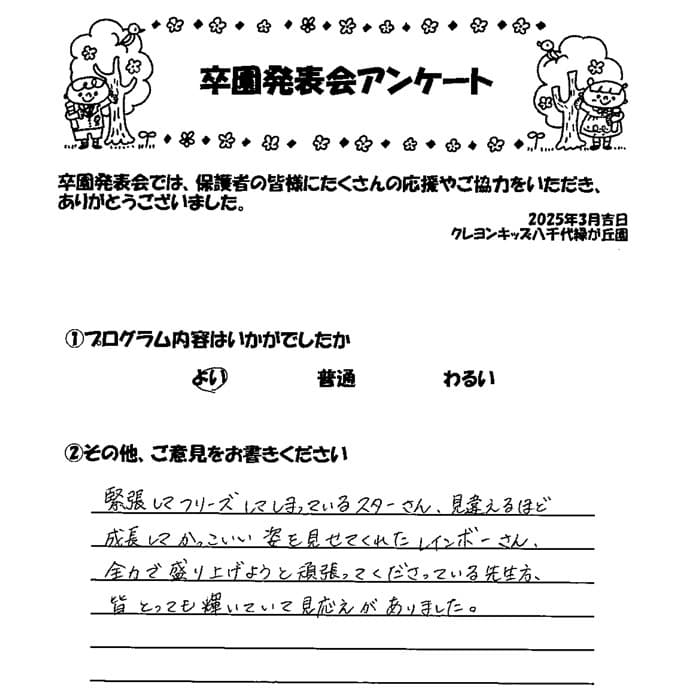 卒園発表会アンケート
卒園発表会では、保護者の皆様にたくさんの応援やご協力をいただき、
ありがとうございました。
2025年3月吉日
クレヨンキッズ八千代緑が丘園
①プログラム内容はいかがでしたか
よい 普通 わるい
②その他、ご意見をお書きください
緊張してフリーズしてしまっているスターさん、見違えるほど
成長してかっこいい姿を見せてくれたレインボーさん、
全力で盛り上げようと頑張ってくださっている先生方、
皆とっても輝いていて見応えがありました。